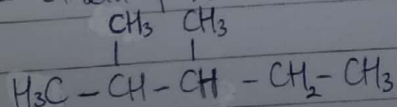 CH₃ CH₃
H₃C – CH – CH – CH₂ – CH₃